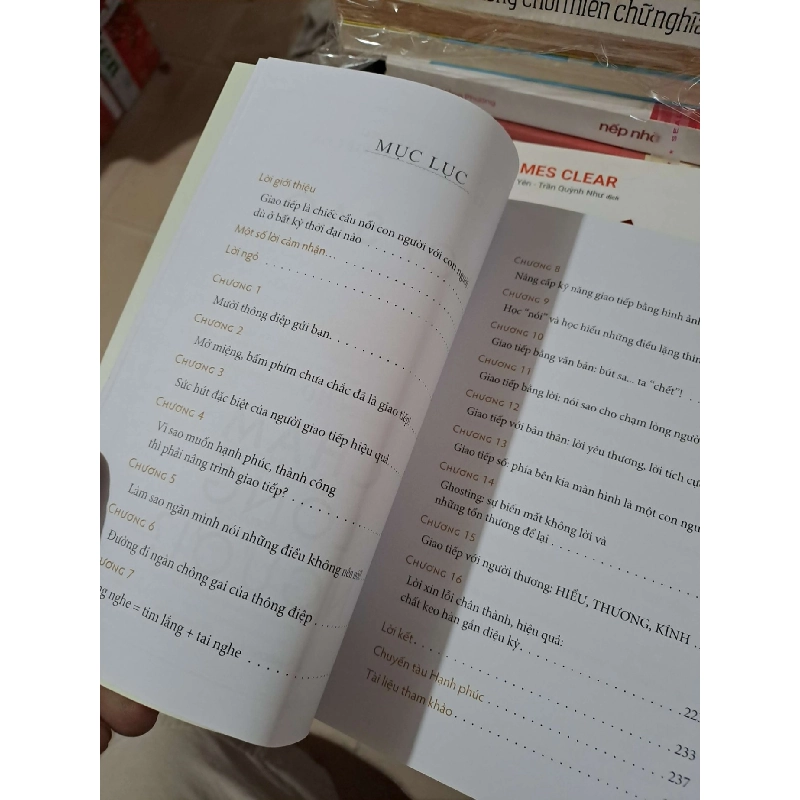 chơi miền chữ nghĩa
nếp nhà
MES CLEAR
Yên - Trần Quỳnh Như dịch
MỤC LỤC
Lời giới thiệu
Giao tiếp là chiếc cầu nối con người với con người
dù ở bất kỳ thời đại nào
Một số lời cảm nhận...
Lời ngỏ
CHƯƠNG 1
Mười thông điệp gửi bạn
CHƯƠNG 2
Mở miệng, bấm phím chưa chắc đã là giao tiếp
CHƯƠNG 3
Sức hút đặc biệt của người giao tiếp hiệu quả
CHƯƠNG 4
Vì sao muốn hạnh phúc, thành công
thì phải nâng trình giao tiếp?
CHƯƠNG 5
Làm sao ngăn mình nói những điều không nên nói
CHƯƠNG 6
Đường đi ngàn chông gai của thông điệp
ƯƠNG 7
nghe = tim lắng + tai nghe
CHƯƠNG 8
Nâng cấp kỹ năng giao tiếp bằng hình ảnh
CHƯƠNG 9
Học "nói" và học hiểu những điều lặng thin
CHƯƠNG 10
Giao tiếp bằng văn bản: bút sa... ta "chết"!
CHƯƠNG 11
Giao tiếp bằng lời: nói sao cho chạm lòng người
CHƯƠNG 12
Giao tiếp với bản thân: lời yêu thương, lời tích cự
CHƯƠNG 13
Giao tiếp số: phía bên kia màn hình là một con ngư
CHƯƠNG 14
Ghosting: sự biến mất không lời và
những tổn thương để lại
CHƯƠNG 15
Giao tiếp với người thương: HIỂU, THƯƠNG, KÍNH
CHƯƠNG 16
Lời xin lỗi chân thành, hiệu quả:
chất keo hàn gắn diệu kỳ
Lời kết 22
Chuyến tàu Hạnh phúc 233
Tài liệu tham khảo 237